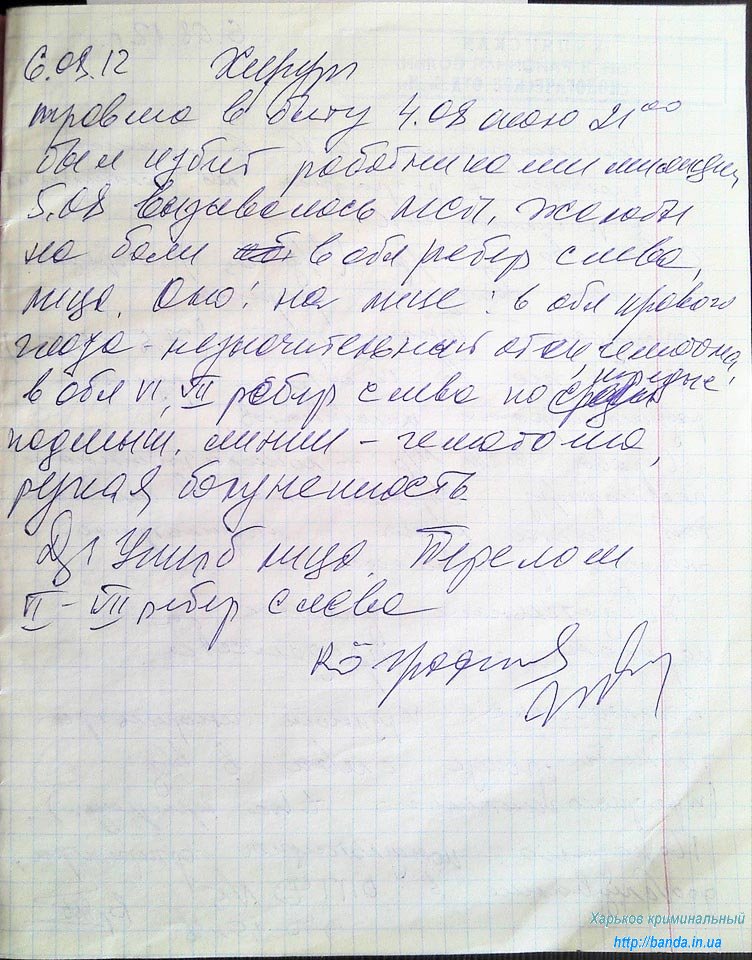 6.08.12 Хирург
травма в быту 4.08 около 21⁰⁰
был избит работниками милиции,
5.08 вызывалось МСП, жалобы
на боли в обл ребер слева,
лица. Око! на лице: в обл правого
глаза - незначительный отек, гематома,
в обл VI, VII ребер слева по средне
подмыш. линии - гематома,
резкая болезненность
Дз Ушиб лица, Перелом
VI - VII ребер слева
Rö графия
Харьков криминальный
http://banda.in.ua